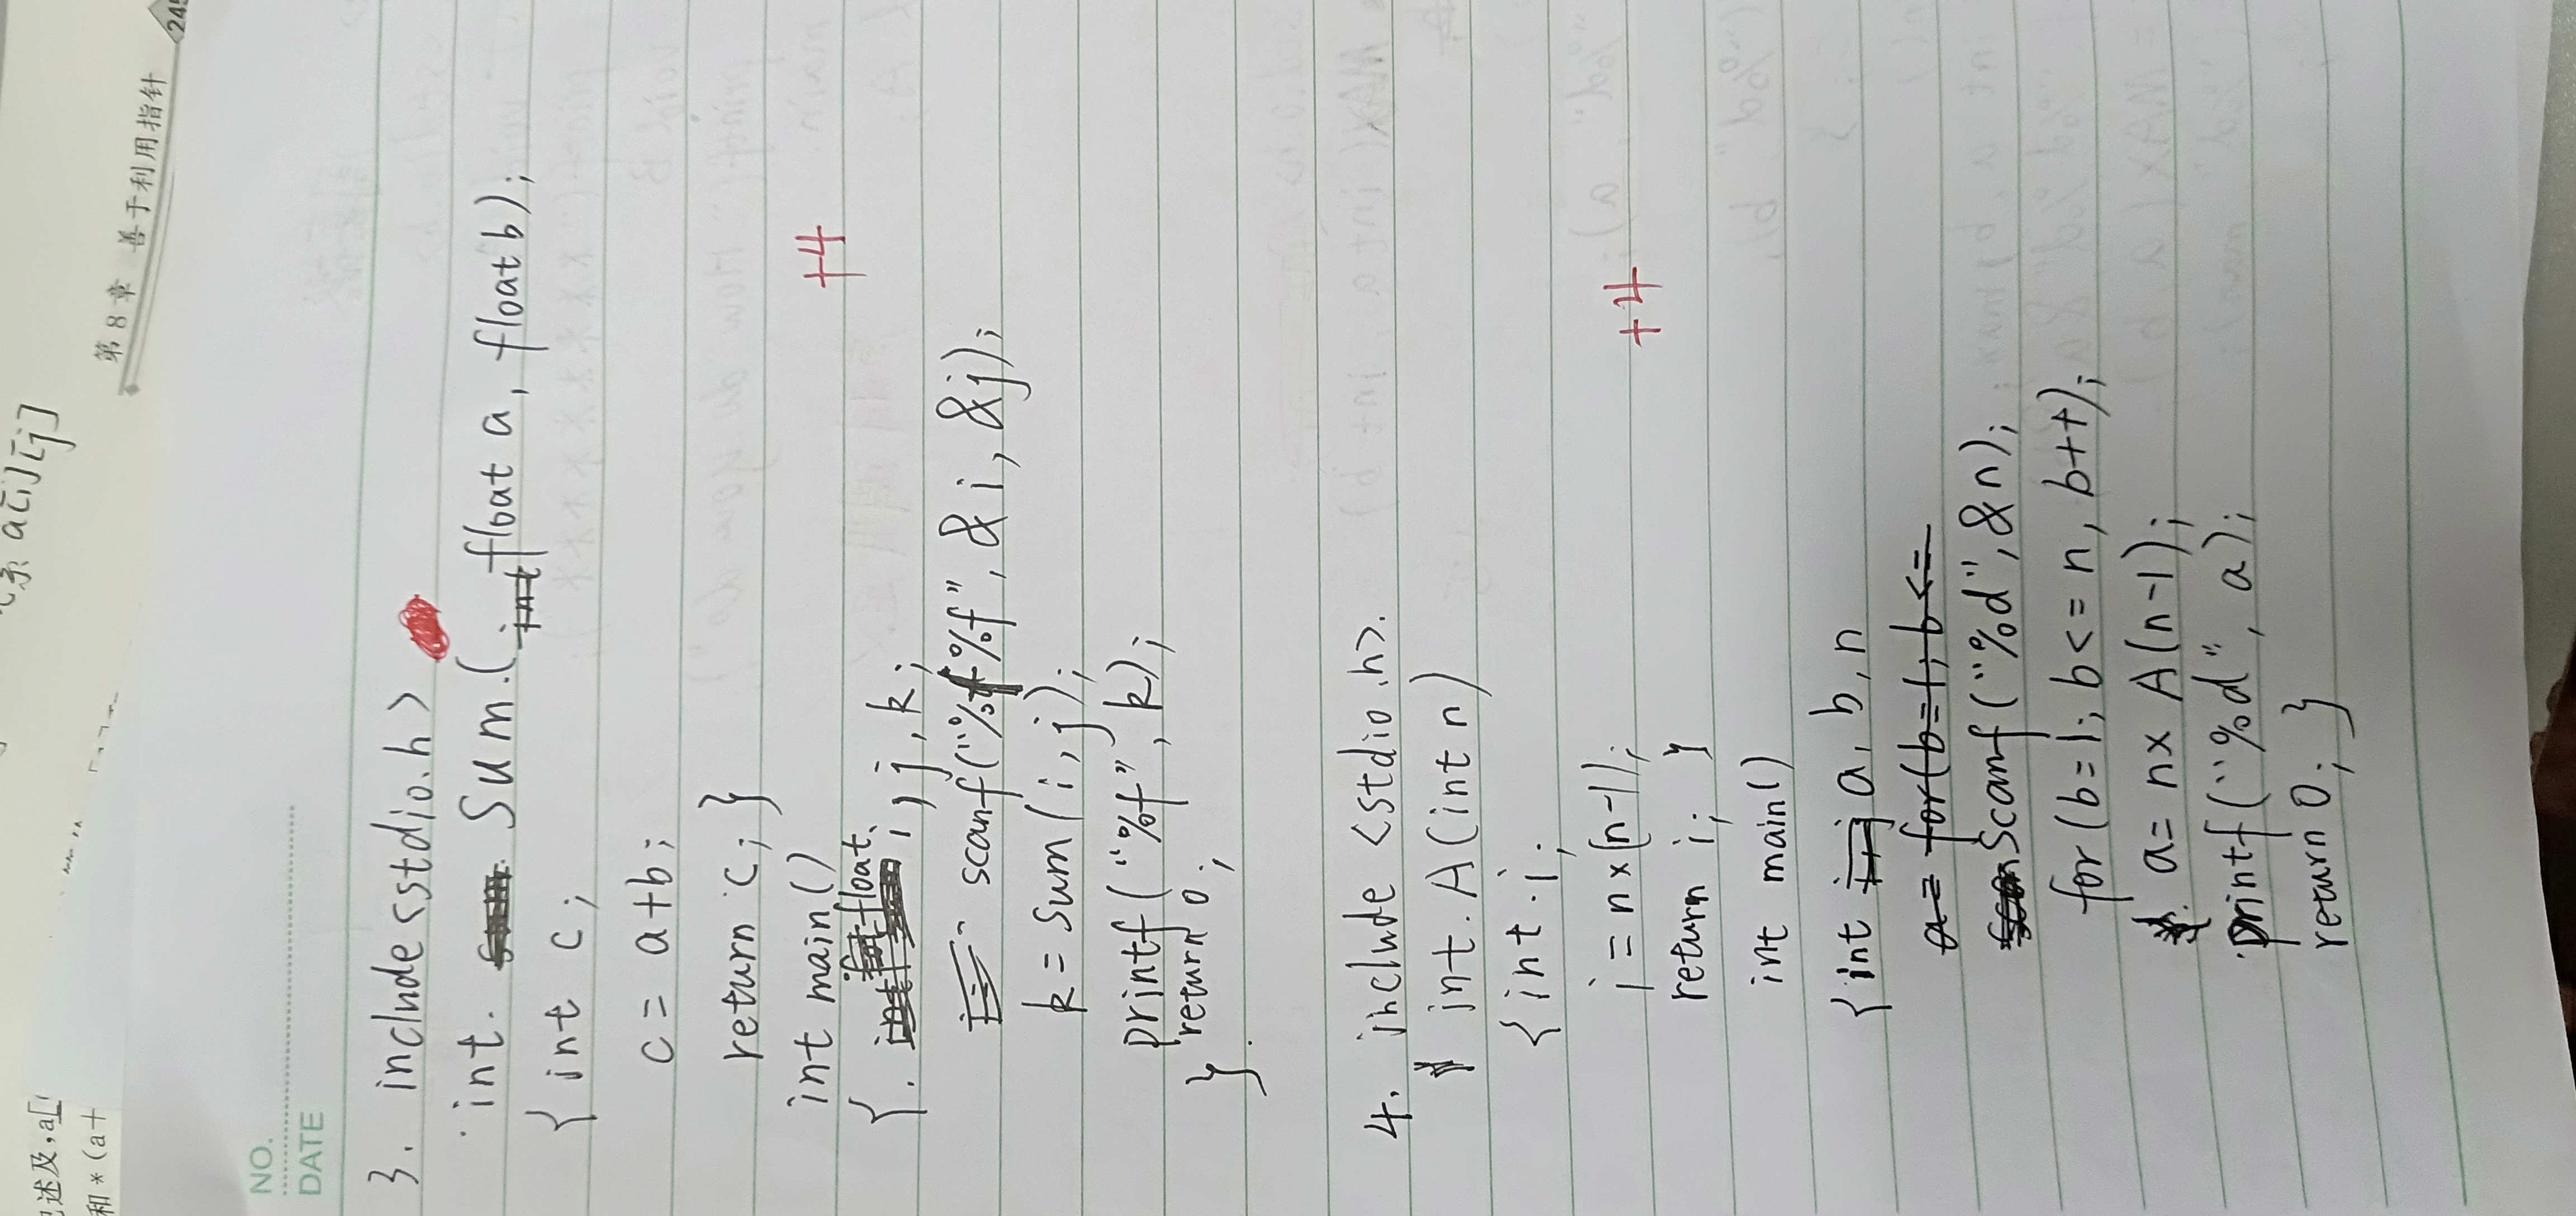 245
第8章 善于利用指针
a[i][j]
述及,a[
和*(a+
NO.
DATE
3. include<stdio.h>
int. Sum.(int float a, float b);
{ int c;
c = a+b;
return c; }
int main()
{. float i, j, k;
scanf("%f%f", &i, &j);
k = sum(i, j);
printf("%f", k);
return 0;
}.
+4
4. include <stdio.h>.
int. A(int n)
{ int i;
i = n×(n-1);
return i; }
+4
int main()
{int a, b, n
a= for(b=1; b<=
Scanf("%d",&n);
for(b=1; b<=n, b++);
a= n× A(n-1);
printf("%d", a);
return 0; }